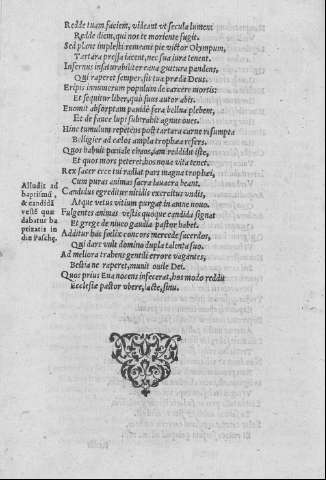 Redde tuam faciem, videant vt secula lumen:
Redde diem, qui nos te moriente fugit.
Sed planè implesti remeans pie victor Olympum,
Tartara pressa iacent, nec sua iura tenent.
Infernus insaturabiliter caua guttura pandens,
Qui raperet semper, fit tua præda Deus.
Eripis innumerum populum de carcere mortis:
Et sequitur liber, quò suus autor abit.
Euomit absorptam pauidè fera bellua plebem,
Et de fauce lupi subtrahit agnus oues.
Hinc tumulum repetens post tartara carne resumpta
Belliger ad cælos ampla trophæa refers.
Quos habuit pœnale chaos, iam reddidit iste,
Et quos mors peteret, hos noua vita tenet.
Rex sacer ecce tui radiat pars magna trophæi,
Cum puras animas sacra lauacra beant.
Candidus egreditur nitidis exercitus vndis,
Atque vetus vitium purgat in amne nouo.
Fulgentes animas vestis quoque candida signat
Et grege de niueo gaudia pastor habet.
Additur hac fœlix concors mercede sacerdos,
Qui dare vult domino dupla talenta suo.
Ad meliora trahens gentili errore vagantes,
Bestia ne raperet, munit ouile Dei.
Quos prius Eua nocens infecerat, hos modo reddit
Ecclesiæ pastor vbere, lacte, sinu.
Alludit ad
baptismũ,
& candidã
vestẽ quæ
dabatur ba
ptizatis in
die Paschę.